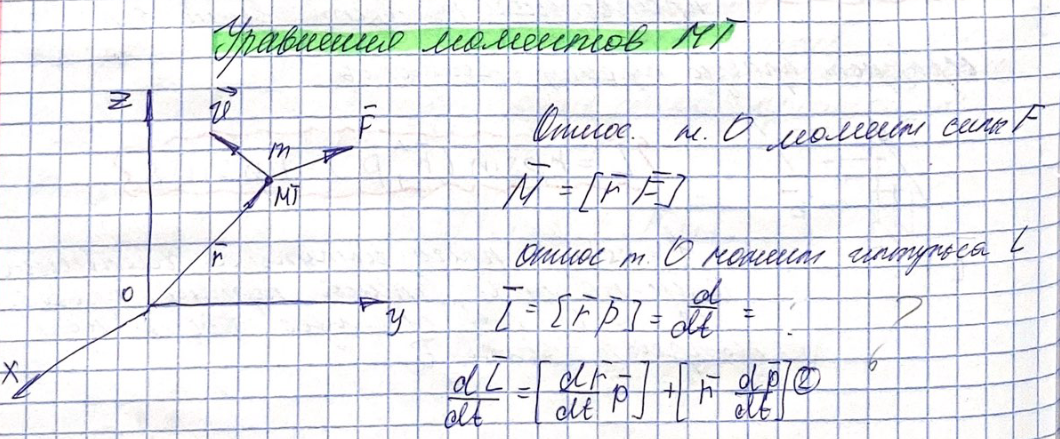 Уравнение моментов МТ
Z
v̄
F̄
m
МТ
r̄
O
y
X
Относ. т. О момент силы F
M̄ = [r̄ F̄]
относ т. О момент импульса L
L̄ = [r̄ p̄] = d/dt = : ?
dL̄/dt = [dr̄/dt p̄] + [r̄ dp̄/dt] ②